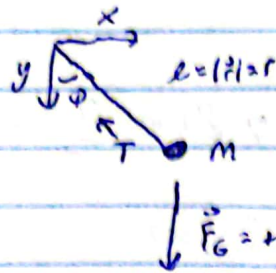 x
y
φ
l = |r⃗| = r
T
M
F⃗_G = +